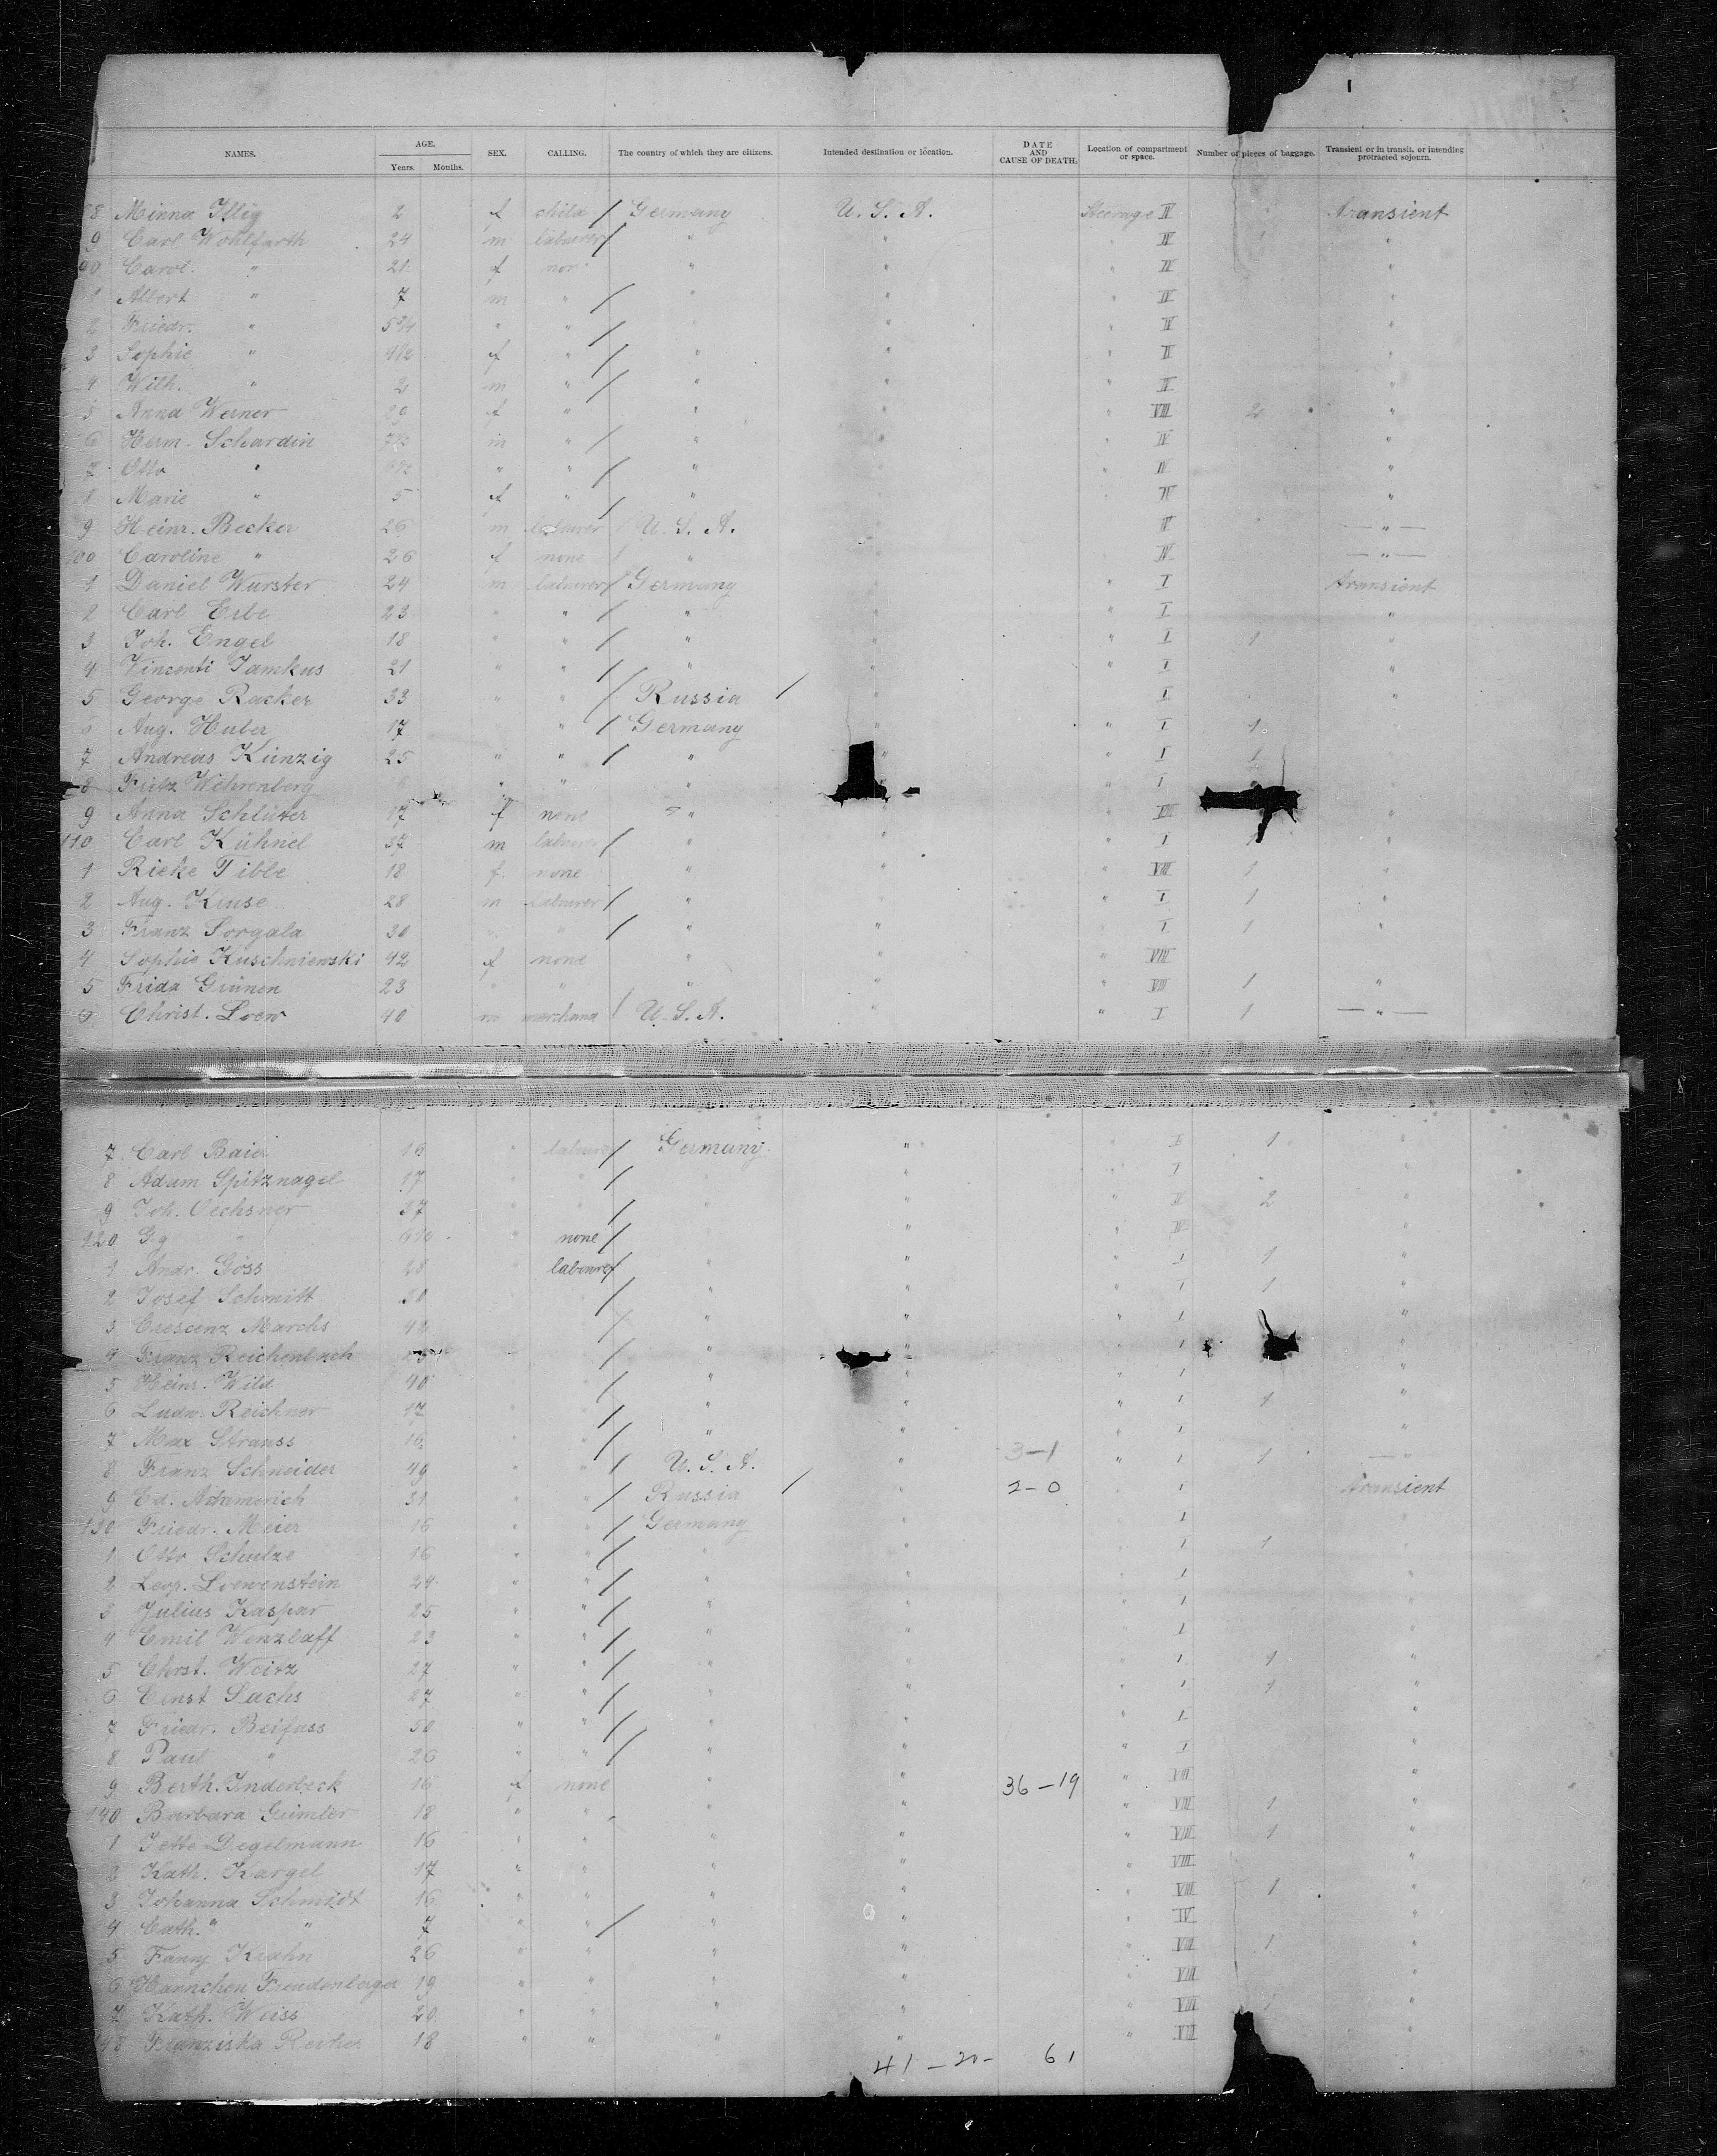 NAMES. AGE. Years. Months. SEX. CALLING. The country of which they are citizens. Intended destination or location. DATE AND CAUSE OF DEATH. Location of compartment or space. Number of pieces of baggage. Transient or in transit, or intending protracted sojourn.
8 Minna Illig 2 f child / Germany U. S. A. Steerage IV transient
9 Carl Wohlfarth 24 m labourer / " " " IV "
90 Carol. " 21 f " " " IV "
1 Albert " 7 m " / " " " IV "
2 Friedr. " " " / " " IV "
3 Sophie " f " / " " " IV "
4 Wilh. " 2 m " / " " " IV "
5 Anna Werner 29 f " " " VIII 2 "
6 Herm. Schardin m " / " " " IV "
7 Otto " " " / " " IV "
8 Marie " 5 f " / " " IV "
9 Heinr. Becker 26 m labourer / U. S. A. " IV — " —
100 Caroline " 26 f none / " " " IV — " —
1 Daniel Wurster 24 m labourer / Germany " " I transient
2 Carl Erbe 23 " " / " " " I "
3 Joh. Engel 18 " " / " " " I 1 "
4 Vincenti Jamkus 21 " " / " " " I "
5 George Racker 33 " " / Russia / " " I "
6 Aug. Huber 17 " / Germany " " I 1
7 Andreas Künzig 25 " " / " " " I 1
8 Fritz Wehrenberg " " " " I
9 Anna Schlüter 17 f none " " VIII "
110 Carl Kühnel 37 m labourer / " " " I "
1 Rieke Tibbe 18 f. none " " " VIII 1 "
2 Aug. Kruse 28 m labourer / " " I 1 "
3 Franz Sorgala 30 " " / " " " I 1 "
4 Sophie Kuschnienski 42 f none " " " VIII
5 Frida Grünen 23 " " " " " VIII 1 "
6 Christ. Loew 40 m merchand / U. S. A. " " I 1 — " —
7 Carl Baier 16 " labourer / Germany " I 1 "
8 Adam Spitznagel 17 " " / " " I "
9 Joh. Oechsner 37 " / " " 2 "
120 Gg " " none / " " IV "
1 Andr. Göss 28 labourer / " " " I 1 "
2 Josef Schmitt 30 / " " " I 1 "
3 Crescenz Marchs 42 / " " " I "
4 Franz Reichenbach / " " I "
5 Heinr. Wild 40 " / " " " I "
6 Ludw. Reichner 17 " / " " " I 1 "
7 Max Strauss 16 " / " " " I "
8 Franz Schneider 49 " " / U. S. A. " 3-1 " I 1 — "
9 Ed. Adamerich 31 " " / Russia / " 2-0 " I transient
130 Friedr. Meier 16 " " / Germany " " I "
1 Otto Schulze 16 " " / " " " I 1 "
2 Leop. Loewenstein 24 " " / " " " I "
3 Julius Kaspar 25 " " / " " " I "
4 Emil Wenzlaff 23 " " / " " " I "
5 Chrst. Weitz 27 " " / " " " I 1 "
6 Ernst Sachs 27 " " / " " " I 1 "
7 Friedr. Beifuss 50 " " / " " " I "
8 Paul " 26 " " / " " " I "
9 Berth. Inderbeck 16 f none " " 36-19 " VIII "
140 Barbara Gümler 18 " " " " " VIII 1 "
1 Jette Degelmann 16 " " " " " VIII 1 "
2 Kath. Kargel 17 " " " " " VIII "
3 Johanna Schmidt 16 " " " " " VIII 1 "
4 Cath. " " 7 " " / " " " IV "
5 Fanny Krahn 26 " " " " " VIII 1 "
6 Hannchen Freudenberger 19 " " " " " VIII "
7 Kath. Weiss 20 " " " " " VIII 1 "
148 Franziska 18 " " " " " VIII "
41-20- 61